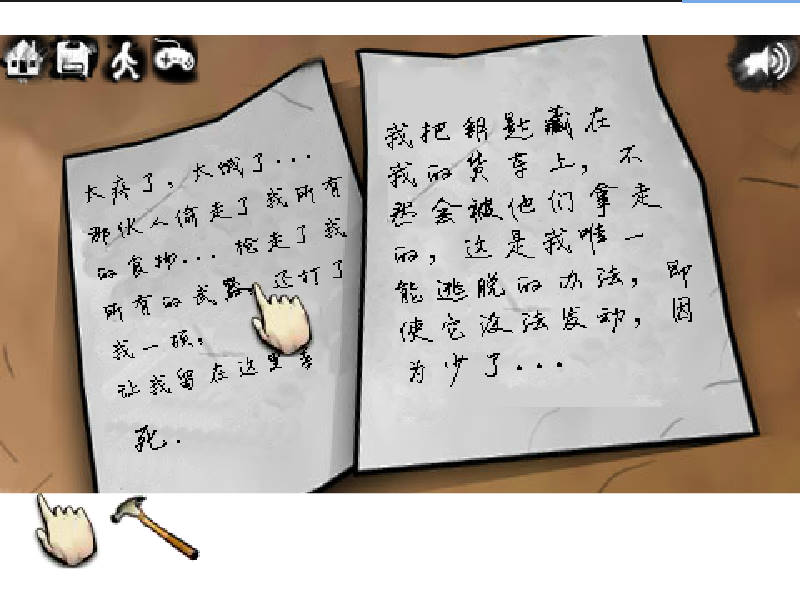 太疼了，太饿了...
那伙人偷走了我所有
的食物...抢走了我
所有的武器，还打了
我一顿。
让我留在这里等
死.
我把钥匙藏在
我的货车上，不
然会被他们拿走
的，这是我唯一
能逃脱的办法，即
使它没法发动，因
为少了...